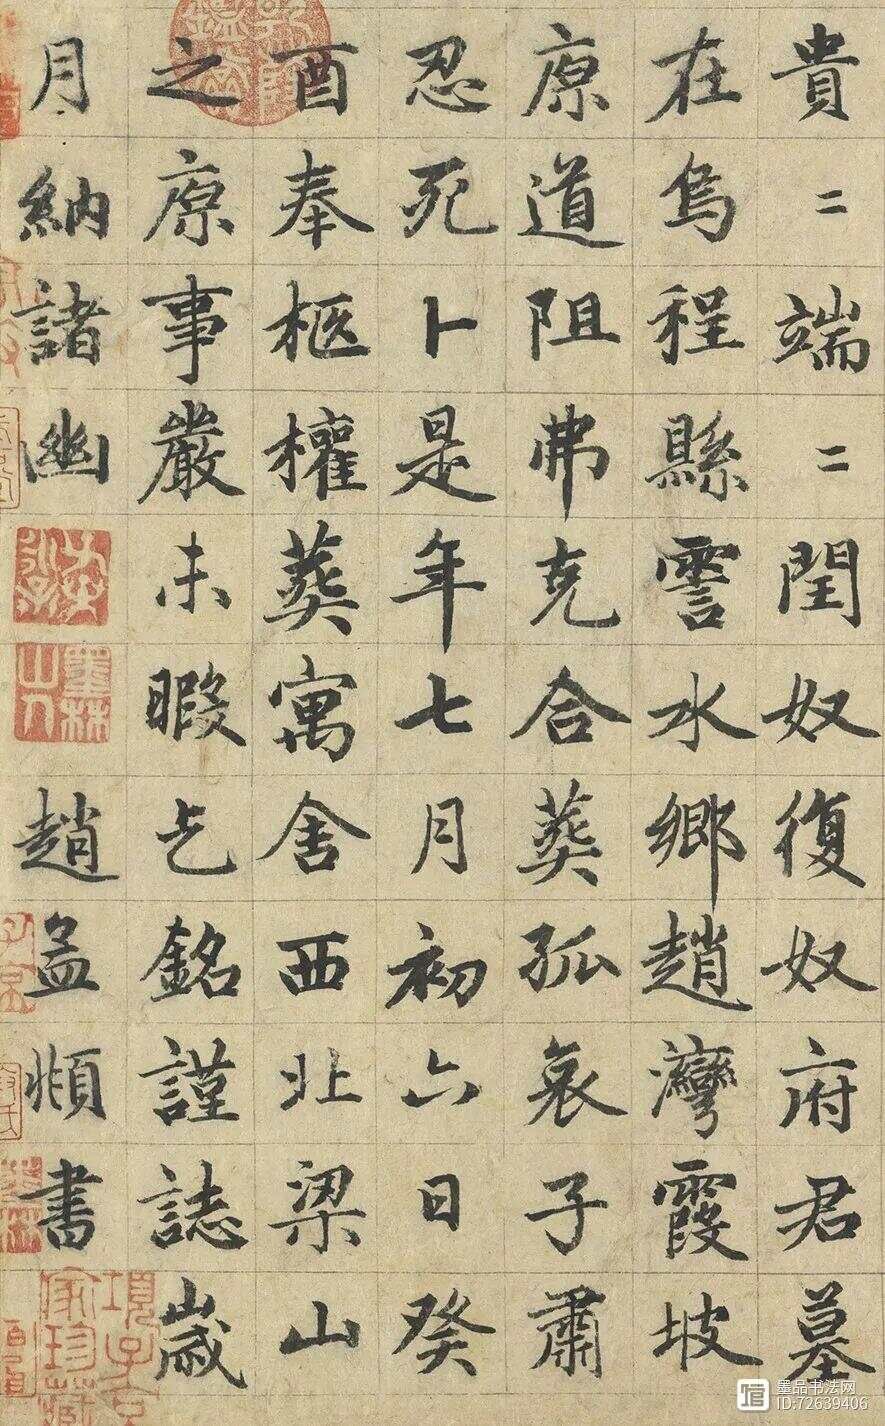 貴二端二閏奴復奴府君墓
在烏程縣霅水鄉趙灣霞坡
原道阻弗克合葬孤哀子肅
忍死卜是年七月初六日癸
酉奉柩權葬寓舍西北梁山
之原事嚴未暇乞銘謹誌歲
月納諸幽
趙孟頫書
墨林山人
項子京家珍藏
墨品书法网
ID:72639406